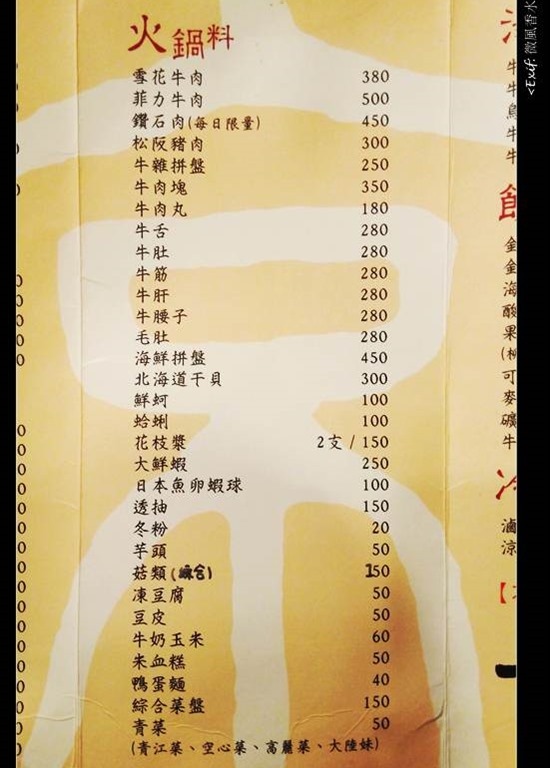 火鍋料
雪花牛肉 380
菲力牛肉 500
鑽石肉(每日限量) 450
松阪豬肉 300
牛雜拼盤 250
牛肉塊 350
牛肉丸 180
牛舌 280
牛肚 280
牛筋 280
牛肝 280
牛腰子 280
毛肚 280
海鮮拼盤 450
北海道干貝 300
鮮蚵 100
蛤蜊 100
花枝漿 2支 / 150
大鮮蝦 250
日本魚卵蝦球 100
透抽 150
冬粉 20
芋頭 50
菇類(綜合) 150
凍豆腐 50
豆皮 50
牛奶玉米 60
米血糕 50
鴨蛋麵 40
綜合菜盤 150
青菜 50
(青江菜、空心菜、高麗菜、大陸妹)
<Exif. 微風香水